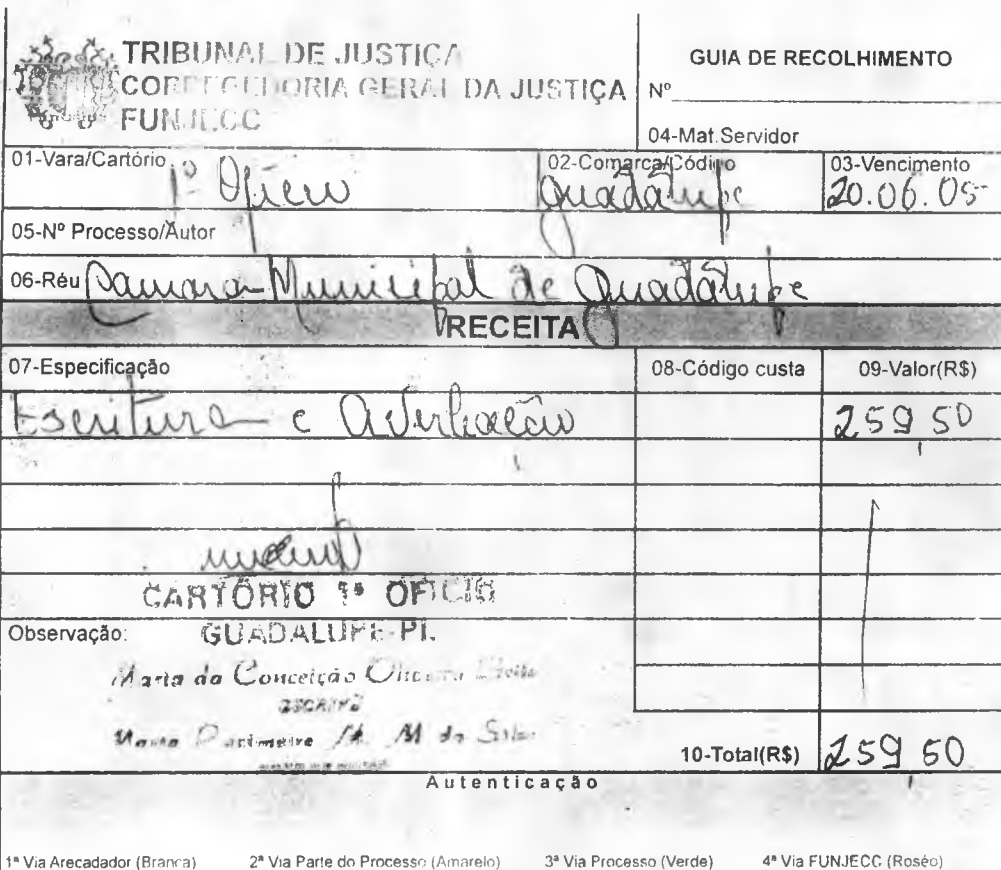 TRIBUNAL DE JUSTIÇA
CORREGEDORIA GERAL DA JUSTIÇA
FUNJECC
GUIA DE RECOLHIMENTO
Nº
04-Mat.Servidor
01-Vara/Cartório 1º Oficio
02-Comarca/Código Guadalupe
03-Vencimento 20.06.05
05-Nº Processo/Autor
06-Réu Camara Municipal de Guadalupe
RECEITA
07-Especificação 08-Código custa 09-Valor(R$)
Escritura e Averbação 259,50
CARTÓRIO 1º OFICIO
Observação: GUADALUPE-PI.
Maria da Conceição Oliveira
ESCRIVÃ
Maria M da Silva
10-Total(R$) 259,50
Autenticação
1ª Via Arecadador (Branca) 2ª Via Parte do Processo (Amarelo) 3ª Via Processo (Verde) 4ª Via FUNJECC (Roséo)